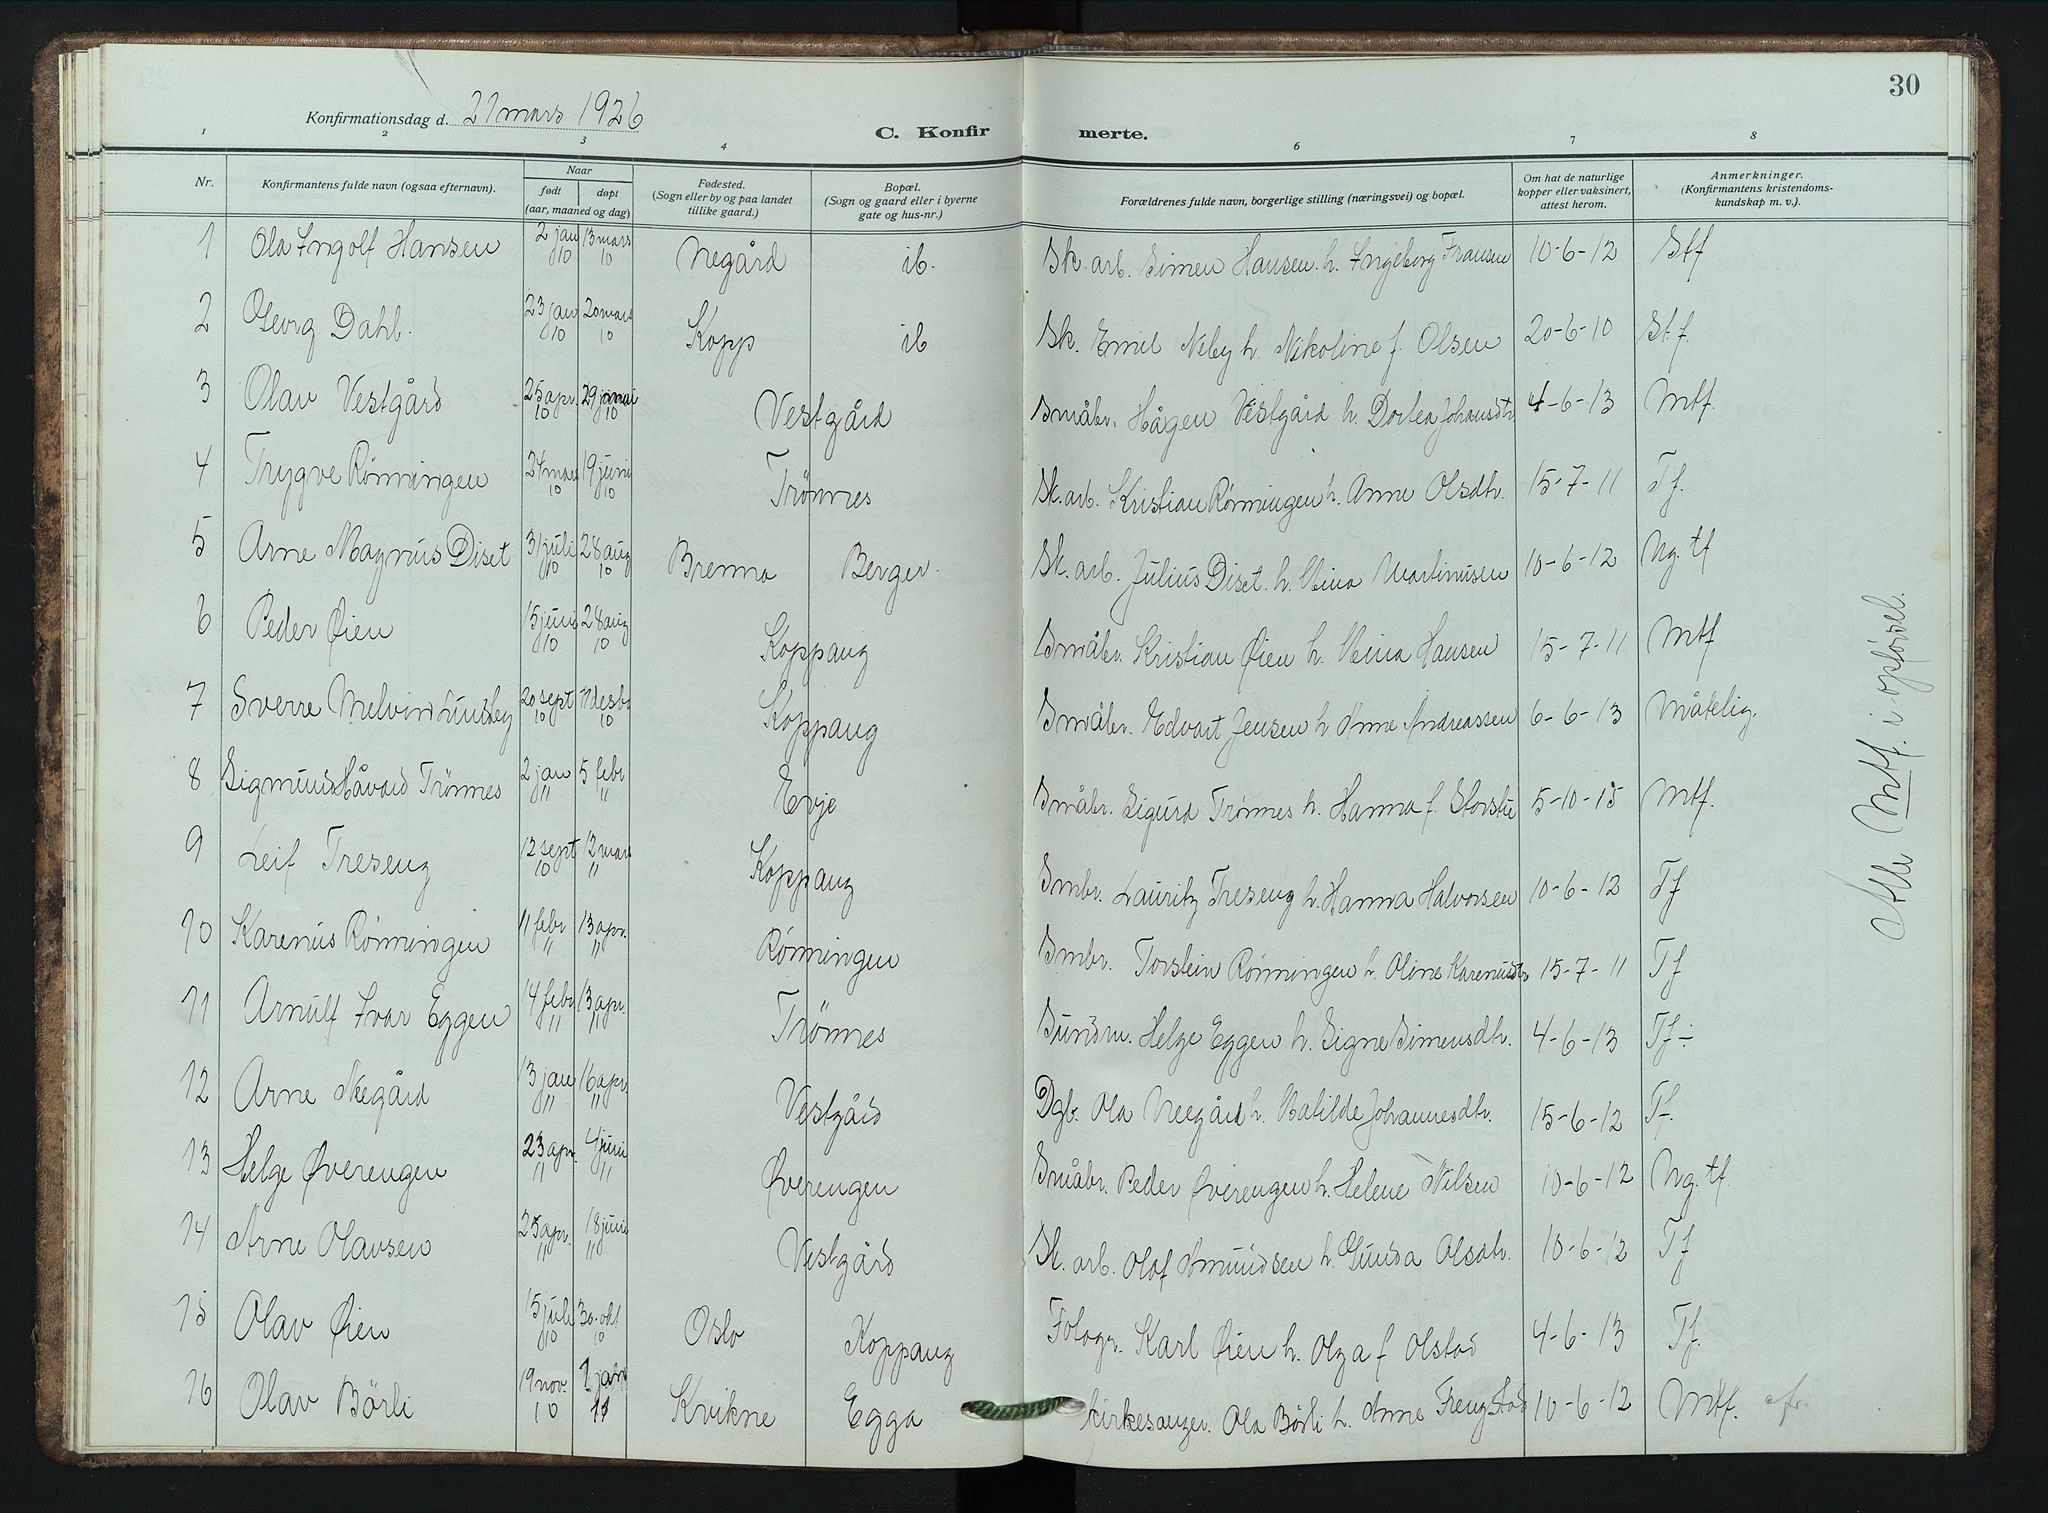 30
Konfirmationsdag d. 21 mars 1926
C. Konfirmerte.
1 2 3 4 6 7 8
Nr. Konfirmantens fulde navn (ogsaa efternavn). Naar født døpt (aar, maaned og dag) Fødested. (Sogn eller by og paa landet tillike gaard.) Bopæl. (Sogn og gaard eller i byerne gate og hus-nr.) Forældrenes fulde navn, borgerlige stilling (næringsvei) og bopæl. Om hat de naturlige kopper eller vaksinert, attest herom. Anmerkninger. (Konfirmantens kristendomskundskap m. v.).
1 Ola Ingolf Hansen 2 jan 10 13 mars 10 Negård ib. Sk. arb. Simen Hansen h. Ingeborg Fransen 10-6-12 Stf
2 Georg Dahl. 23 jan 10 20 mars 10 Kopp ib Sk. Emil Neby h. Nikoline f. Olsen 20-6-10 St.f
3 Olav Vestgård 25 apr. 10 29 mai 10 Vestgård Småbr. Hågen Vestgård h. Dortea Johansdtr. 4-6-13 Mtf.
4 Trygve Rønningen 24 mars 10 19 juni 10 Trønnes Sk. arb. Kristian Rønningen h. Anne Olsdtr. 15-7-11 Tf.
5 Arne Magnus Diset 31 juli 10 28 aug 10 Brenna Berger. Sk. arb. Julius Diset. h. Mina Martinusen 10-6-12 Ng. tf
6 Peder Øien 15 juni 10 28 aug 10 Koppang Småbr. Kristian Øien h. Mina Hansen 15-7-11 Mtf
7 Sverre Melvin Lundby 20 sept 10 desbr 10 Koppang Småbr. Edvart Jensen h. Anne Andreassen 6-6-13 Måtelig.
8 Sigmund Håvard Trønnes 2 jan 11 5 febr 11 Evje Småbr. Sigurd Trønnes h. Hanna f. 5-10-15 Mtf.
9 Leif Treseng 12 sept 10 12 mars 11 Koppang Smbr. Lauritz Treseng h. Hanna Halvorsen 10-6-12 Tf
10 Karenus Rønningen 11 febr 11 13 apr. 11 Rønningen Smbr. Torstein Rønningen h. Oline Karenusdtr 15-7-11 Tf
11 Arnulf Ivar Eggen 14 febr 11 13 apr. 11 Trønnes Helge Eggen h. Signe Simensdtr. 4-6-13 Tf ÷
12 Arne Negård 13 jan 11 16 apr 11 Vestgård Dgb. Ola Neegård h. Batilde Johannesdtr. 15-6-12 Tf.
13 Helge Øverengen 23 apr. 11 4 juni 11 Øverengen Småbr. Peder Øverengen h. Helene Nilsen 10-6-12 Ng. tf.
14 Arne Olavsen 25 apr. 11 18 juni 11 Vestgård Sk. arb. Olaf Amundsen h. Gunda Olsdtr. 10-6-12 Tf
15 Olav Øien 15 juli 10 30. okt 10 Oslo Koppang Fotogr. Karl Øien h. Olga f Olstad 4-6-13 Tf.
16 Olav Börli 19 nov. 10 1 jan 11 Kvikne Egga Kirkesanger. Ola Börli h. Anne Frengstad 10-6-12 Mtf.
Alle Mtf. i opførsel.